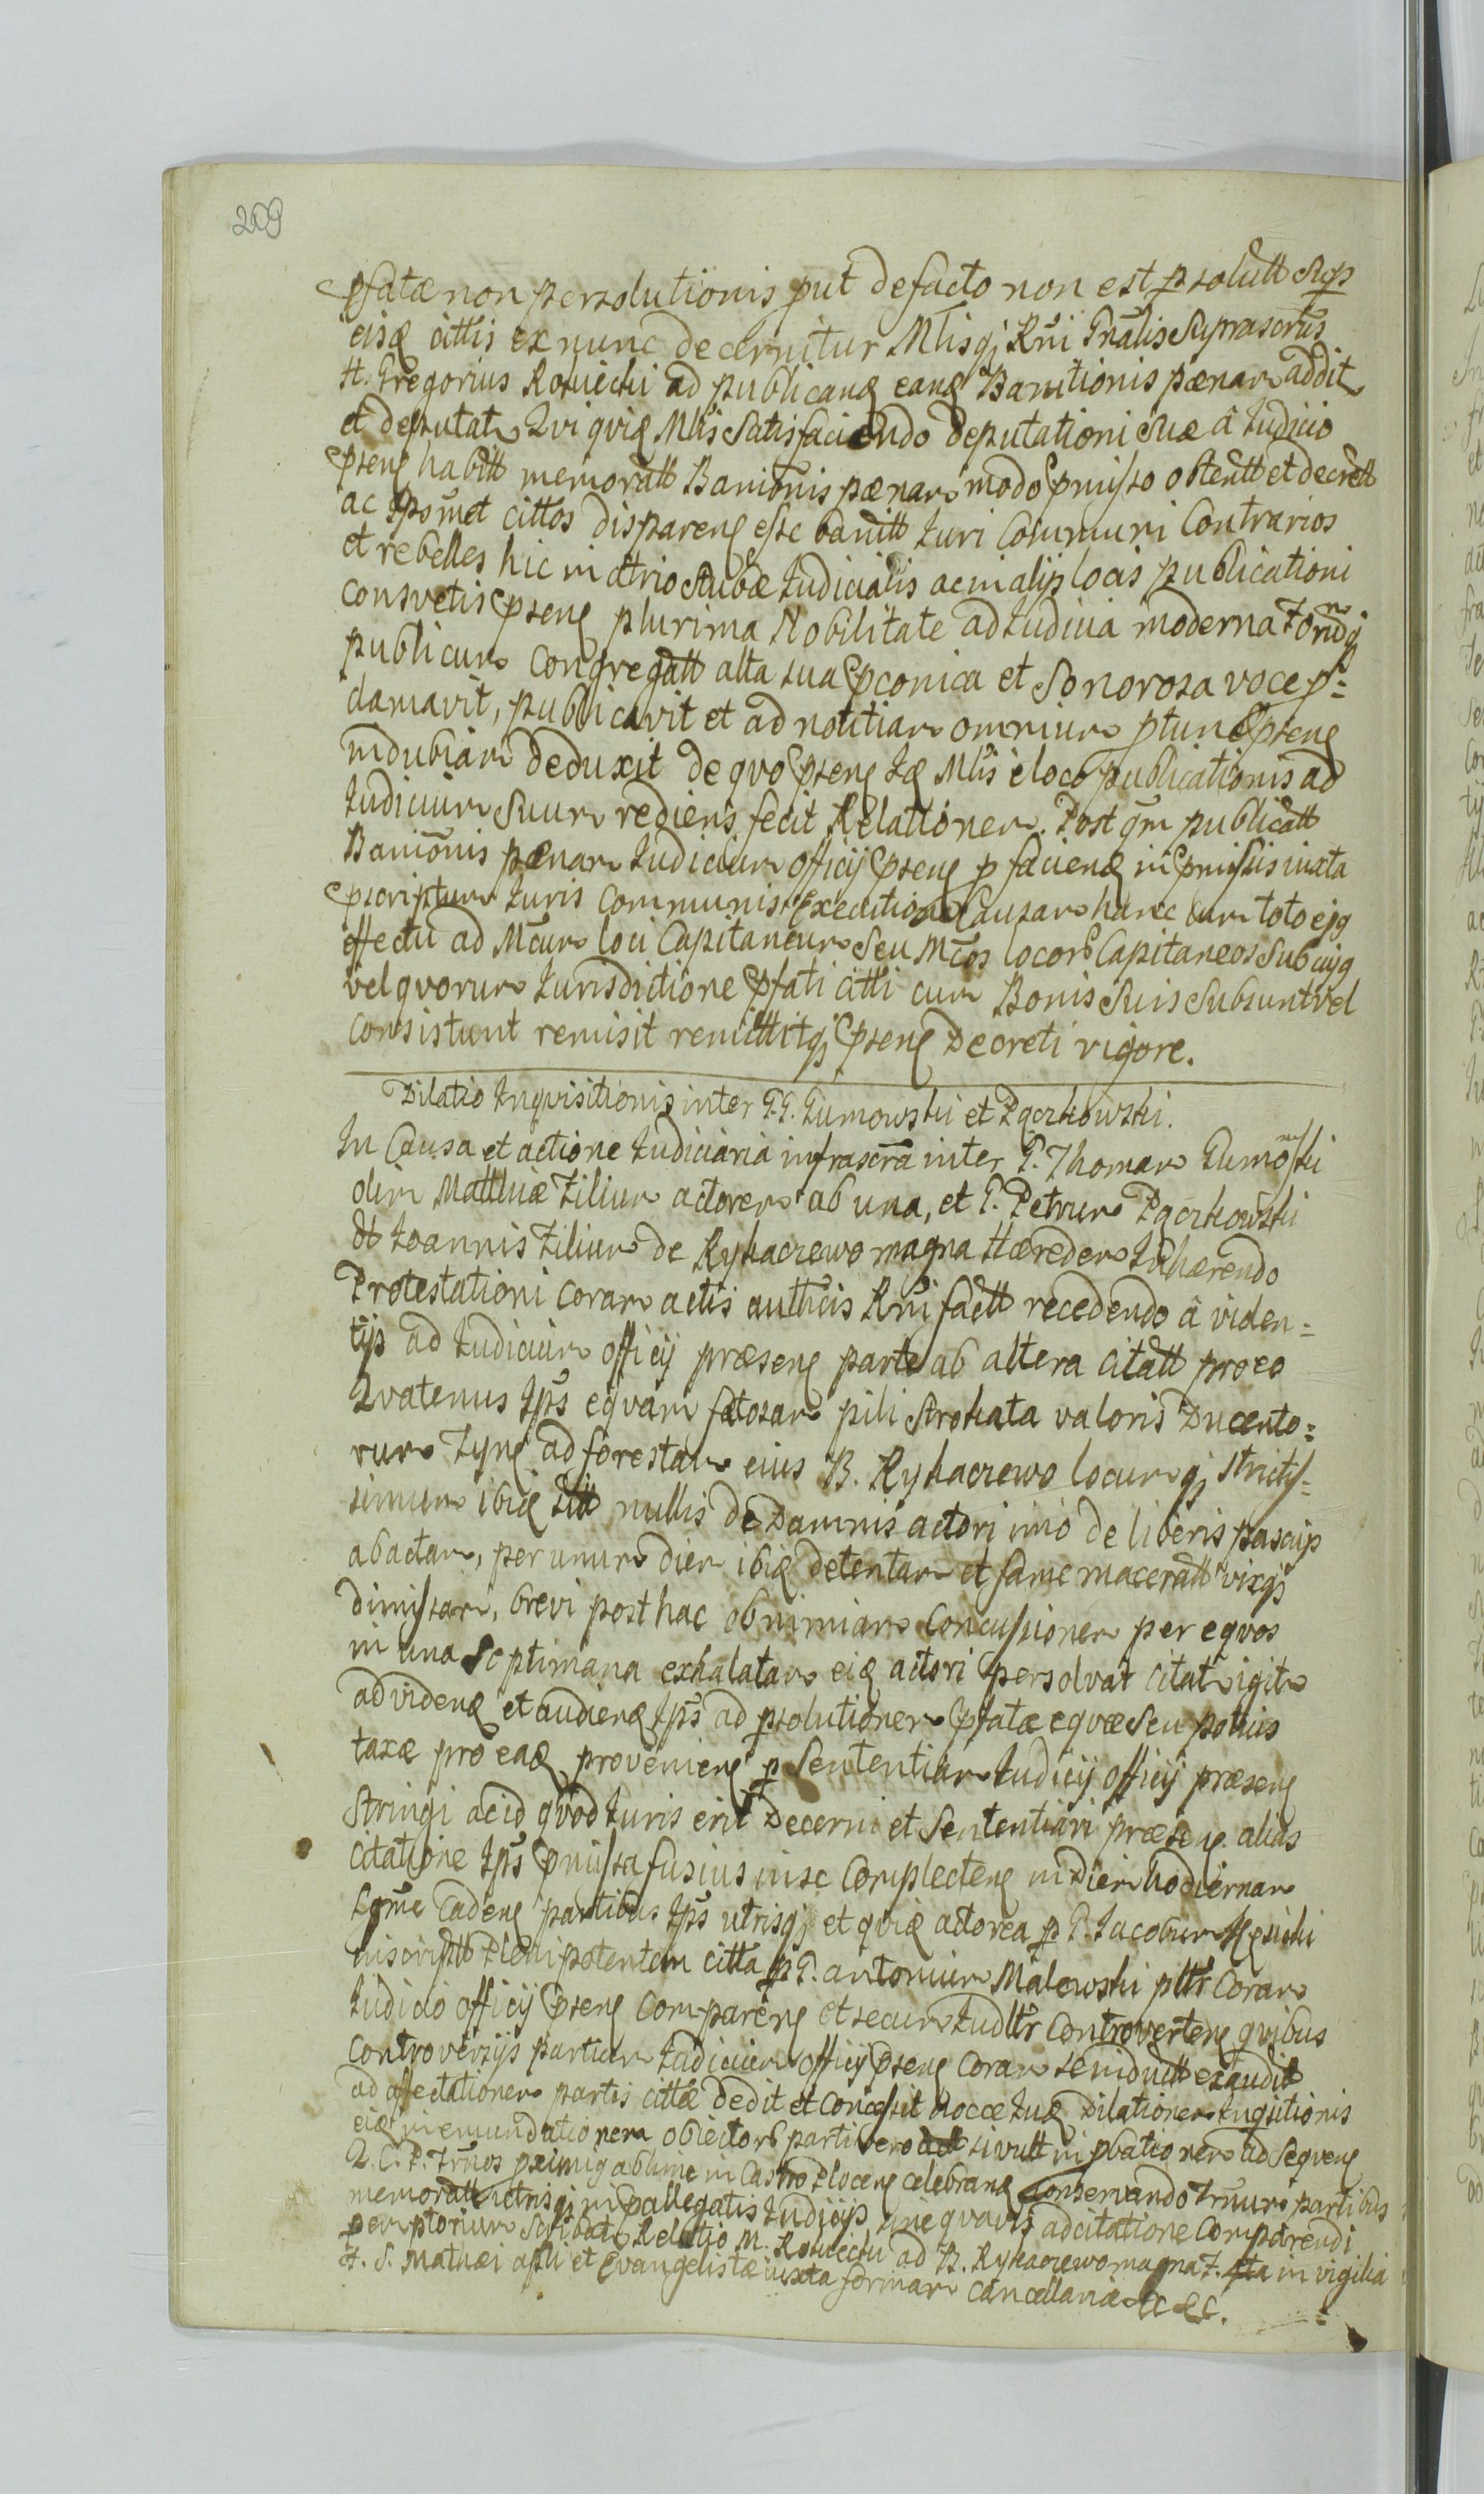 209
pfatæ non persolutionis put defacto non est psolutt sup
eisq cittis ex nunc decernitur Mlisqj Rni Gnalis Suprascrus
H. Gregorius Rowiecki ad publicanq eanq Banitionis pænam addit
et deputat Qviqviq Mlis Satisfaciendo deputationi suæ â Judicio
pseng habitt memoratt Banionis pænam modo pmisso obtentt et decrett
ac Ipsmet cittos dispareng esse banitt Juri Communi Contrarios
et rebelles hic in atrio Stubæ Judicialis ac in alijs locis publicationi
consvetis pseng plurima Nobilitate ad Judicia moderna
publicum Congregatt alta sua pconica et Sonorosa voce p=
clamavit, publicavit et ad notitiam omnium ptunc pseng
indubiam deduxit de qvo pseng Mlis è loco publicationis ad
Judicium Suum rediens fecit Relationem. Post qm publicatt
Banionis pænam Judicium officij pseng p facienq in pmissis iuxta
pscriptum Juris Communis Executione Causam hanc cum toto ejg
effectu ad Mcum loci Capitaneum Seu Mcos locor Capitaneos Sub cujg
vel qvorum Jurisdictione pfati citti cum Bonis Suis Subsunt vel
consistunt remisit remittitqj pseng Decreti vigore.
Dilatio Inqvisitionis inter G.G. Gumowski et Pgorkowski.
In Causa et actione Judiciaria infrascra inter G. Thomam Gumowski
olim Matthiæ Filium actorem ab una, et G. Petrum Pgorkowski
Joannis Filium de Rykacrewo magna Hæredem Inhærendo
Protestationi coram actis authcis Rni factt recedendo â viden=
tijs ad Judicium officij præseng parte ab altera citatt pro eo
Qvatenus Ips eqvam fætosam pili Strokata valoris Ducento=
rum Tynq ad forestam eius B. Rykacrewo locum qj strictis=
simum ibiq nullis de Damnis actori imò de liberis pascuis
abactam, per unum diem ibiq detentam et fame maceratt vixqj
dimissam, brevi post hac ob nimiam Concussionem per eqvos
in una Septimana exhalatam eiq actori persolvat citat igit
ad videnq et audienq Ips ad psolutionem pfatæ eqvæ Seu potius
taxæ pro eaq provenieng p Sententiam Judicij officij præseng
Stringi ac id qvod Juris erit Decerni et Sententiari præseng alias
citatione Ips pmissa fusius in se Complecteng in Diem hodiernam
Lgme Cadeng partibus Ips utrisqj et qviq actorea p G. Jacobum
inscriptt Plenipotentem citta p G. antonium Malewski pltr Coram
Judicio officij pseng Compareng et secum Judltr Controverteng qvibus
Controversijs partium Judicium officij pseng coram se inductt exaudit
ad affectationem partis cittæ dedit et Concessit Dilationem Inqsitionis
eiq in emundationem obiector parti vero si vult in pbationem ad Seqveng
Q. C. P. Trnos pximig ab hinc in Castro Ploceng celebranq Conservando Trnum partibus
memoratt utrisqj in pallegatis Judicijs sine qvavis adcitatione Comparendi
peremptorium Scribat Relatio M. Rowiecki ad B. Rykacrewo magna F. in vigilia
F. S. Mathæi apli et Evangelistæ iuxta formam cancellariæ &c &c.